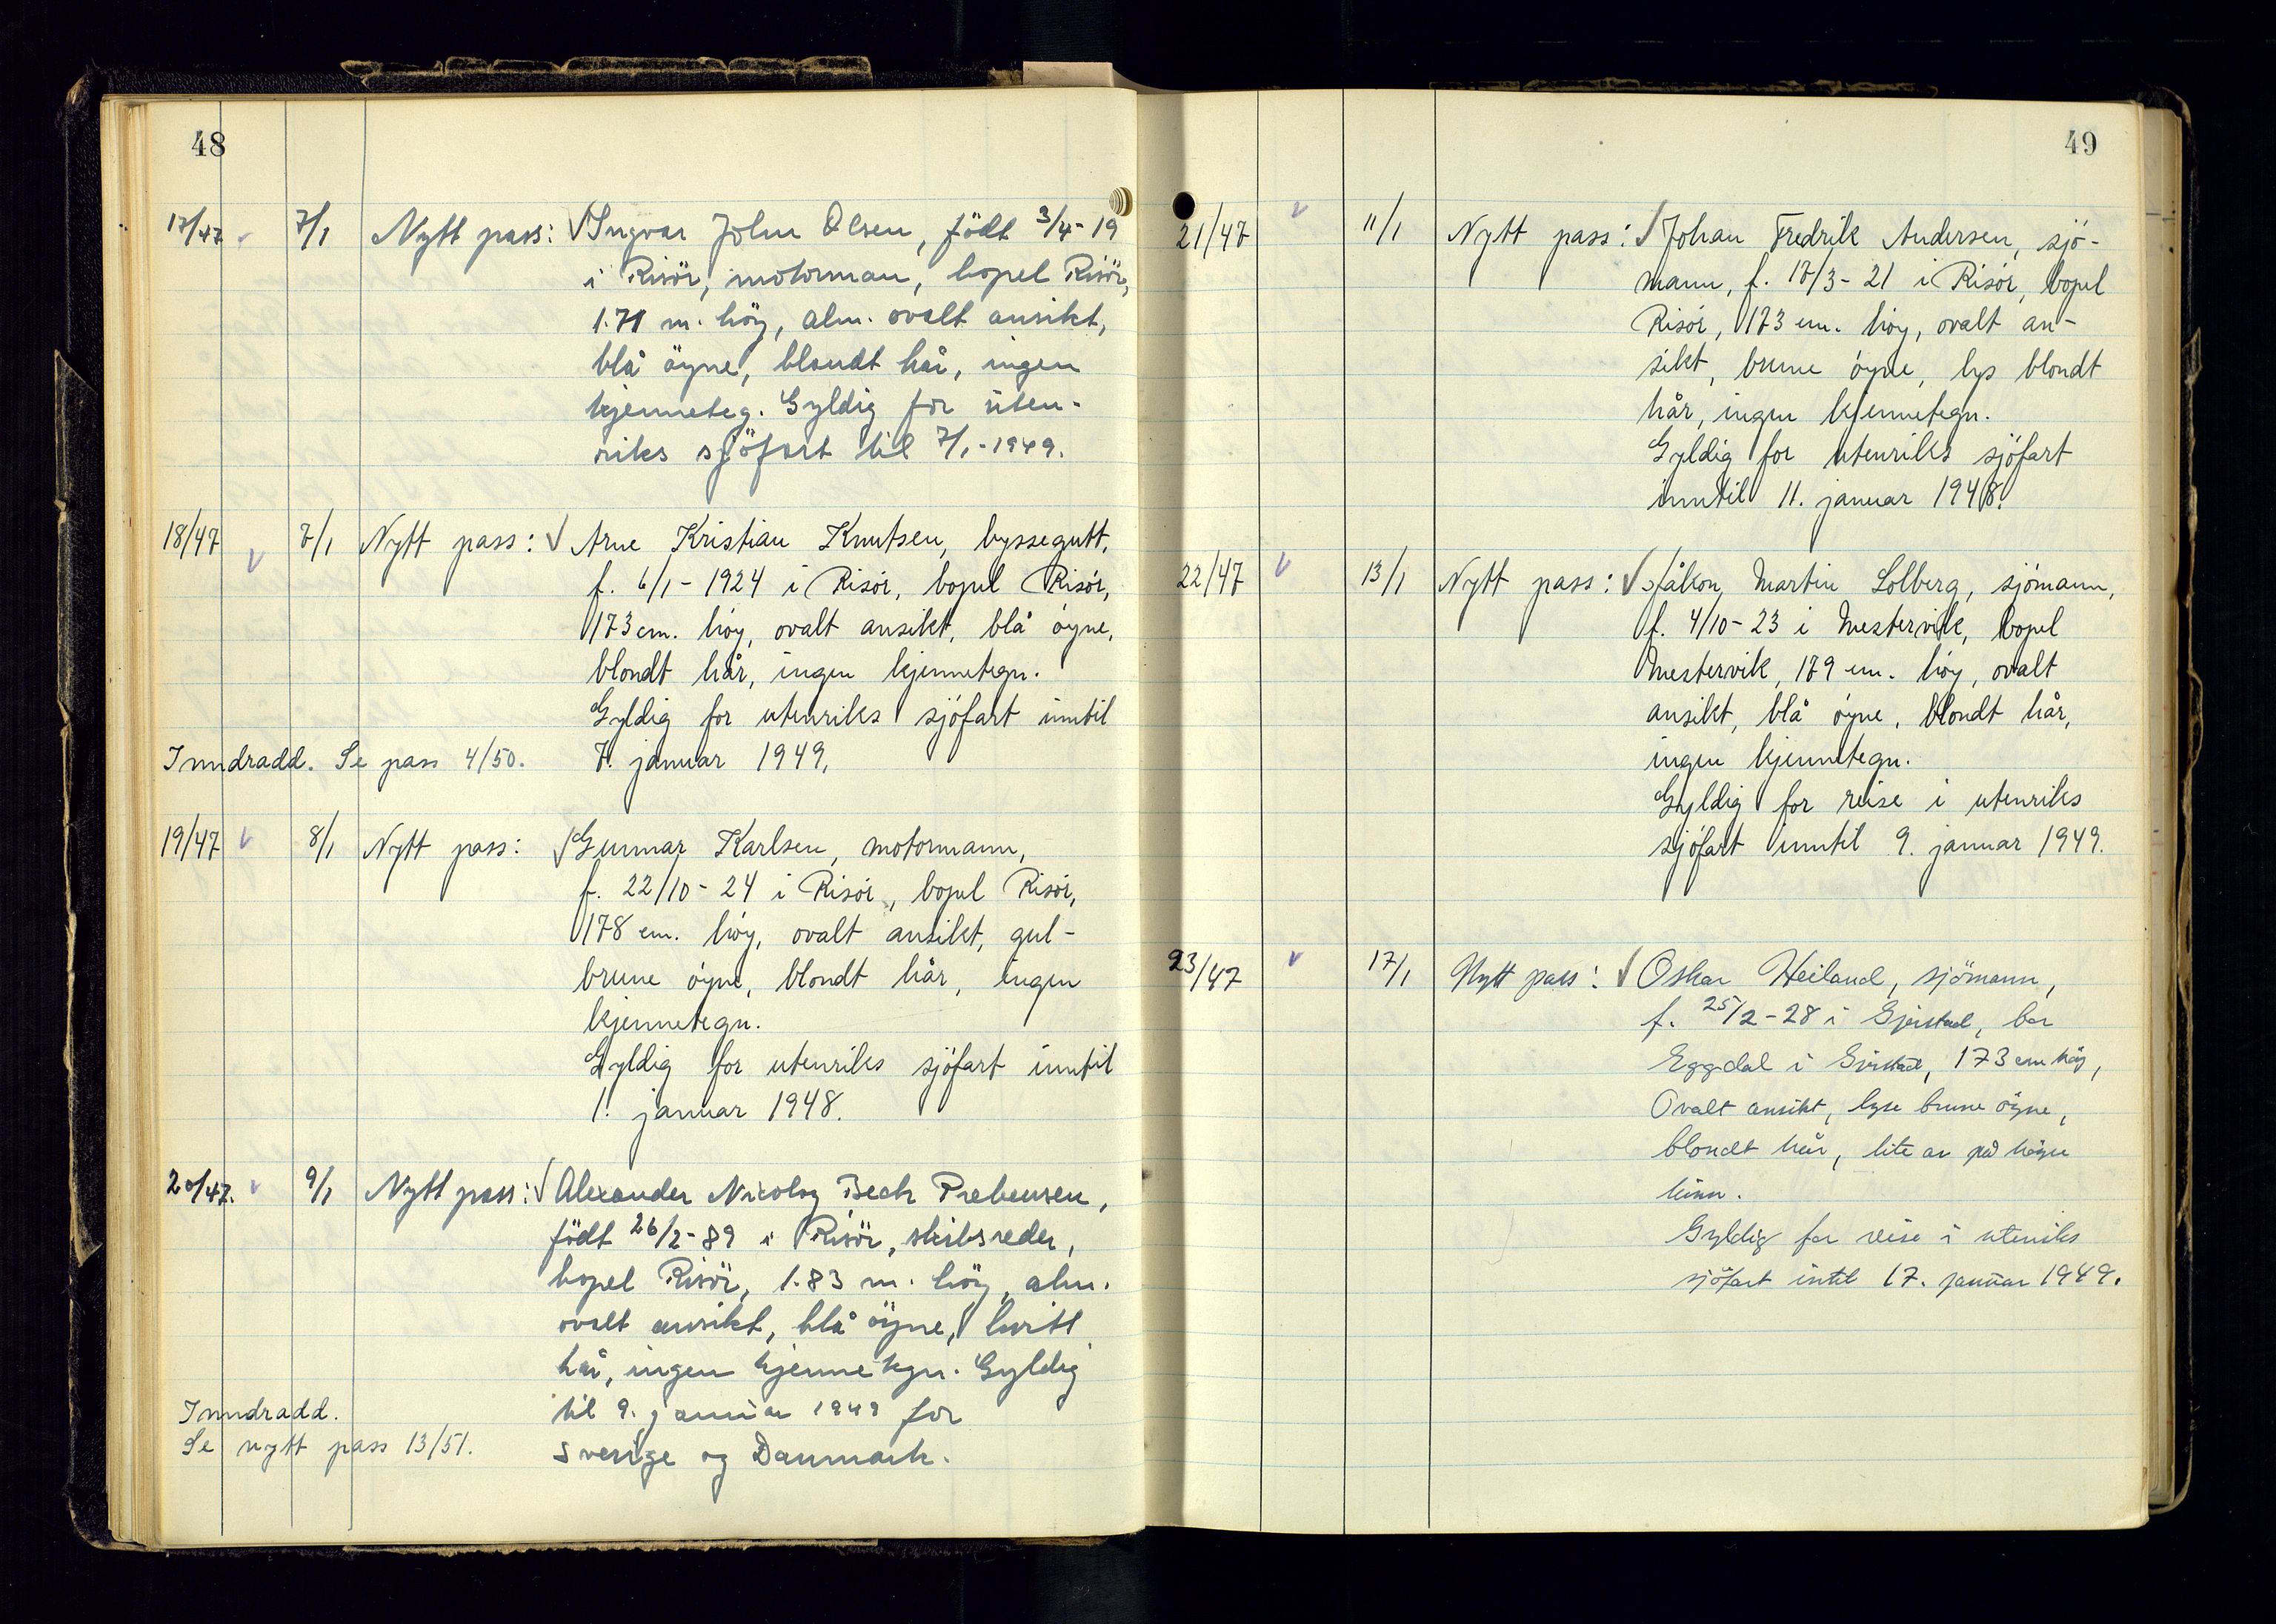 48
17/47 7/1 Nytt pass: Ingvar John Olsen, födt 3/4-19
i Risör, motorman, bopel Risör,
1.71 m. höy, alm. ovalt ansikt,
blå öyne, blondt hår, ingen
kjenneteg. Gyldig for uten-
riks sjöfart til 7/1-1949.
18/47 7/1 Nytt pass: Arne Kristian Knutsen, byssegutt,
f. 6/1-1924 i Risór, bopel Risór,
173 cm. hóy, ovalt ansikt, blå óyne,
blondt hår, ingen kjennetegn.
Gyldig for utenriks sjófart inntil
Inndradd. Se pass 4/50. 7. januar 1949.
19/47 8/1 Nytt pass: Gunnar Karlsen, motormann,
f. 22/10-24 i Risór, bopel Risór,
178 cm. hóy, ovalt ansikt, gul-
brune óyne, blondt hår, ingen
kjennetegn.
Gyldig for utenriks sjófart inntil
1. januar 1948.
20/47. 9/1 Nytt pass: Alexander Nicolay Bech Prebensen,
födt 26/2-89 i Risör, skibsreder,
bopel Risör, 1.83 m. höy, alm.
ovalt ansikt, blå öyne, hvitt
hår, ingen kjennetegn. Gyldig
Inndradd. til 9. januar 1949 for
Se nytt pass 13/51. Sverige og Danmark.
49
21/47 11/1 Nytt pass: Johan Fredrik Andersen, sjó-
mann, f. 17/3-21 i Risór, bopel
Risór, 173 cm. hóy, ovalt an-
sikt, brune óyne, lys blondt
hår, ingen kjennetegn.
Gyldig for utenriks sjófart
inntil 11. januar 1948.
22/47 13/1 Nytt pass: Håkon Martin Solberg, sjómann,
f. 4/10-23 i Mestervik, bopel
Mestervik, 179 cm. hóy, ovalt
ansikt, blå óyne, blondt hår,
ingen kjennetegn.
Gyldig for reise i utenriks
sjófart inntil 9. januar 1949.
23/47 17/1 Nytt pass: Oskar Heiland, sjömann,
f. 25/2-28 i Gjerstad, bor
Eggdal i Gjerstad, 173 cm höy,
Ovalt ansikt, lyse brune öyne,
blondt hår, lite ar på höyre
kinn.
Gyldig for reise i utenriks
sjöfart intil 17. januar 1949.